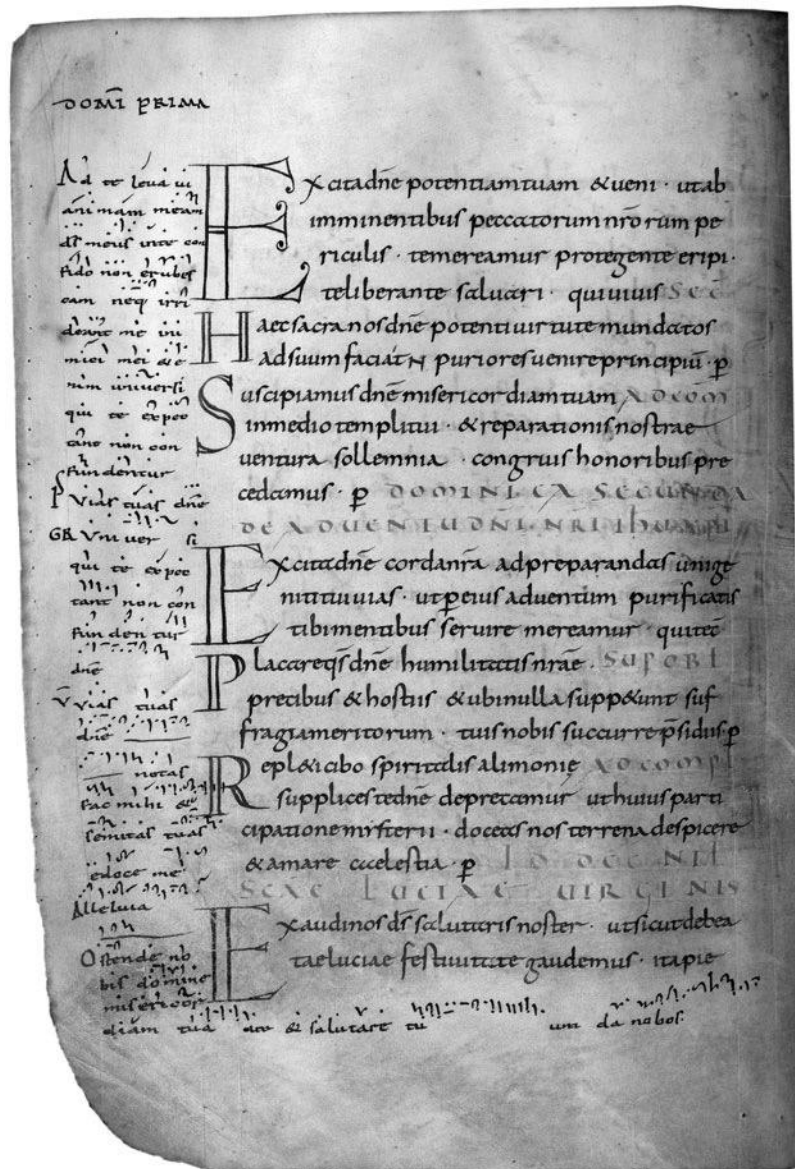 DOMI PRIMA
Ad te leva vi
animam meam
ds meus in te con
fido non erubes
cam neq irri
deant me ini
mici mei & e
nim universi
qui te expec
tant non con
fundentur
P Vias tuas dne
GR Vni ver si
qui te expec
tant non con
fun den tur
dne
V Vias tuas
dne
notas
fac mihi &
semitas tuas
edoce me
Alleluia
Ostende no
bis domine
misericor
diam tuā & salutare tu um da nobis.
Excita dnē potentiam tuam & veni · ut ab
imminentibus peccatorum nrōrum pe
riculis · te mereamur protegente eripi ·
te liberante salvari · qui vivis SEC
Haec sacra nos dnē potenti virtute mundatos
ad suum faciant puriores venire principiū · p
Suscipiamus dnē misericordiam tuam AD COM
in medio templi tui · & reparationis nostrae
ventura sollemnia · congruis honoribus pre
cedamus · p DOMINICA SECUNDA
DE ADVENTU DNI NRI IHU XPI
Excita dnē corda nrā ad preparandas unige
niti tui vias · ut p eius adventum purificatis
tibi mentibus servire mereamur · qui tec
Placare qs dnē humilitatis nrae · SUP OBL
precibus & hostiis & ubi nulla supp&unt suf
fragia meritorum · tuis nobis succurre psidiis · p
Repl&i cibo spiritalis alimonię AD COMPL
supplices te dnē deprecamur ut huius parti
cipatione mysterii · doceas nos terrena despicere
& amare caelestia · p ID DEC NTL
SCAE LUCIAE VIRGINIS
Exaudi nos ds salutaris noster · ut sicut de bea
tae luciae festivitate gaudemus · ita pie